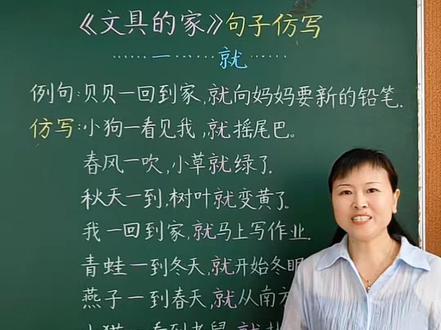 《文具的家》句子仿写
……一……就
例句:贝贝一回到家,就向妈妈要新的铅笔.
仿写:小狗一看见我,就摇尾巴。
春风一吹,小草就绿了.
秋天一到,树叶就变黄了.
我一回到家,就马上写作业.
青蛙一到冬天,就开始冬眠
燕子一到春天,就从南方
小猫一看到老鼠,就